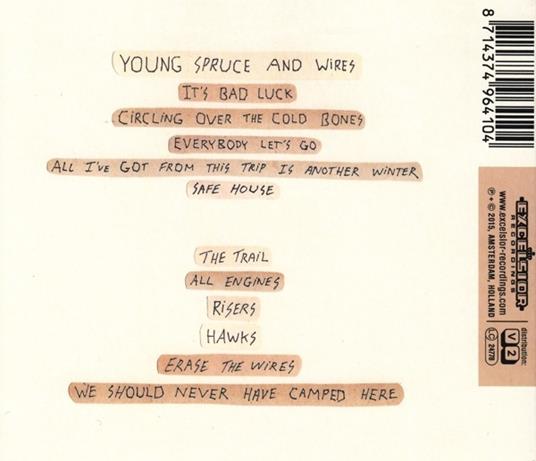 YOUNG SPRUCE AND WIRES
IT'S BAD LUCK
CIRCLING OVER THE COLD BONES
EVERYBODY LET'S GO
ALL I'VE GOT FROM THIS TRIP IS ANOTHER WINTER
SAFE HOUSE
THE TRAIL
ALL ENGINES
RISERS
HAWKS
ERASE THE WIRES
WE SHOULD NEVER HAVE CAMPED HERE
8 714374 964104
EXCELSIOR
RECORDINGS
www.excelsior-recordings.com
℗ + © 2015, AMSTERDAM, HOLLAND
distribution:
V2
LC 24778